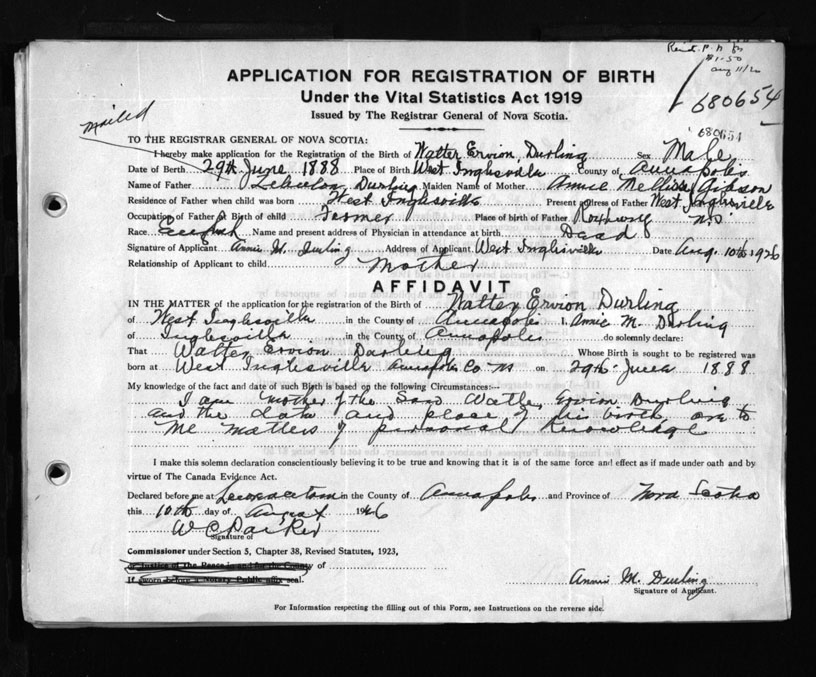 Recd. P.N. for
$1.50
Aug 11/26
680654
APPLICATION FOR REGISTRATION OF BIRTH
Under the Vital Statistics Act 1919
Issued by The Registrar General of Nova Scotia.
mailed
680654
TO THE REGISTRAR GENERAL OF NOVA SCOTIA:
I hereby make application for the Registration of the Birth of Walter Ervion Durling Sex Male
Date of Birth 29th June 1888 Place of Birth West Inglesville County of Annapolis
Name of Father Durling Maiden Name of Mother Annie Mellissa Gibson
Residence of Father when child was born West Inglesville Present address of Father West Inglesville
Occupation of Father at Birth of child Farmer Place of birth of Father N.S.
Race English Name and present address of Physician in attendance at birth Dead
Signature of Applicant Annie M. Durling Address of Applicant West Inglisville Date Aug. 10th 1926
Relationship of Applicant to child Mother
AFFIDAVIT
IN THE MATTER of the application for the registration of the Birth of Walter Ervion Durling
of West Inglesville in the County of Annapolis I, Annie M. Durling
of Inglesville in the County of Annapolis do solemnly declare:
That Walter Ervion Durling Whose Birth is sought to be registered was
born at West Inglesville Annapolis Co. NS on 29th June 1888
My knowledge of the fact and date of such Birth is based on the following Circumstances:—
I am mother of the said Walter Ervion Durling
and the date and place of his birth are to
me matters of personal knowledge
I make this solemn declaration conscientiously believing it to be true and knowing that it is of the same force and effect as if made under oath and by
virtue of The Canada Evidence Act.
Declared before me at Lawrencetown in the County of Annapolis and Province of Nova Scotia
this 10th day of August 1926
W C Parker
Signature of
Commissioner under Section 5, Chapter 38, Revised Statutes, 1923,
or Justice of The Peace in and for the County of
If sworn before a Notary Public affix seal.
Annie M. Durling
Signature of Applicant.
For Information respecting the filling out of this Form, see Instructions on the reverse side.